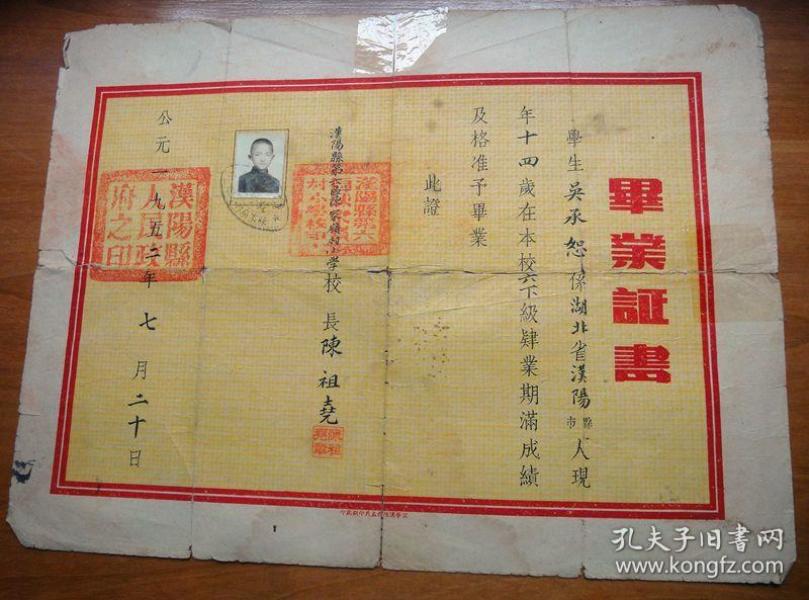 畢業証書
學生吳承恕係湖北省漢陽縣市人現
年十四歲在本校六下級肄業期滿成績
及格准予畢業
此證
漢陽縣第六區陳家嶺村小學校長陳祖堯
公元一九五二年七月二十日
漢陽縣人民政府之印
孔夫子旧书网
www.kongfz.com